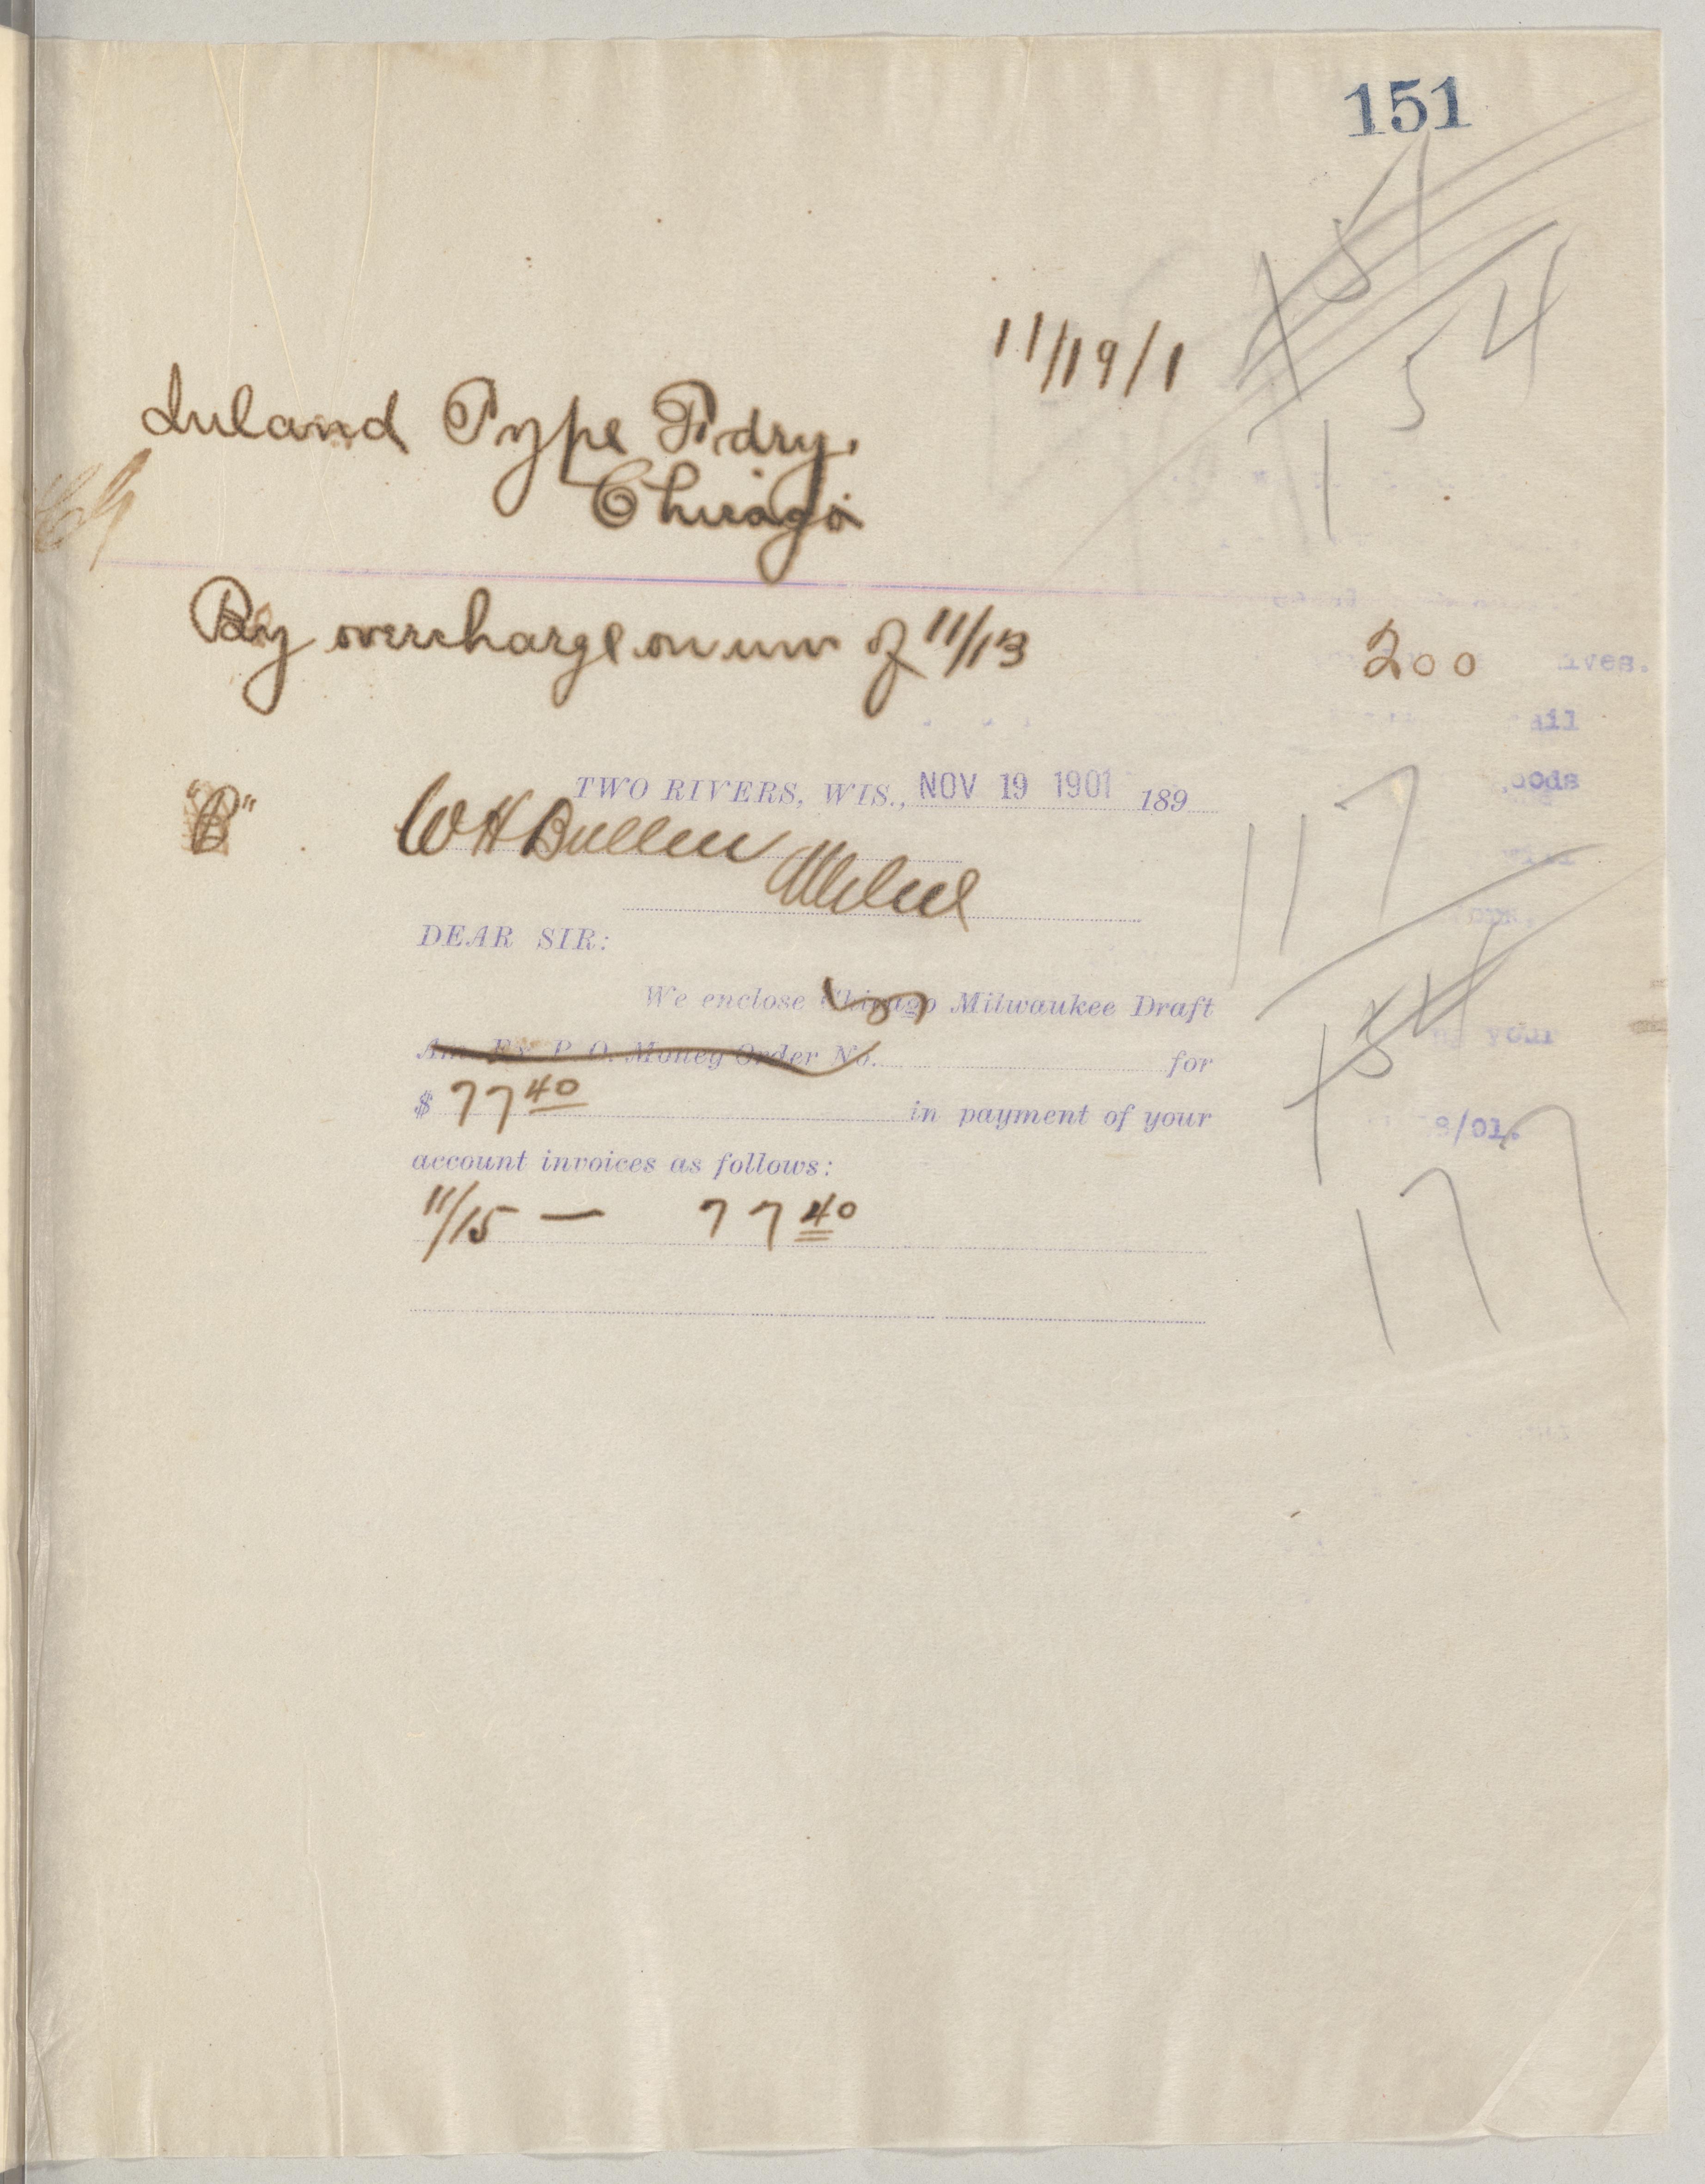 151
11/19/1
154
Inland Type Fdry.
Chicago
By overcharge on inv of 11/13 200
"B"
TWO RIVERS, WIS., NOV 19 1901 189
W H Bullen
DEAR SIR:
We enclose Chicago Milwaukee Draft
117
Am. Ex. P. O. Money Order No. for
154
$ 77 40 in payment of your
account invoices as follows:
11/15 — 77 40
177
ail
oods
your
8/01.